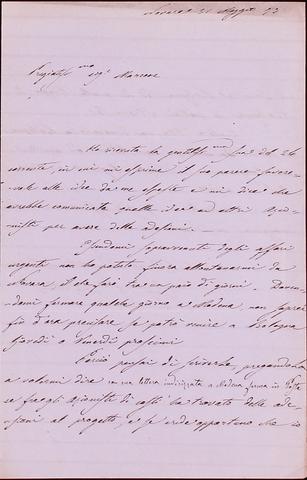 Novara 31 Maggio 73
Pregiatiss.mo sigr Marcone
Ho ricevuto la gentiliss.ma Sua del 26
corrente, in cui mi esprime il suo parere favore-
vole alle idee da me esposte e mi dice che
avrebbe comunicate quelle idee ad altri Azio-
nisti per avere delle adesioni.
Essendomi sopravvenuti degli affari
urgenti non ho potuto finora allontanarmi da
Novara, il che farò tra un paio di giorni. Doven-
domi fermare qualche giorno a Modena, non saprei
fin d'ora precisare se potrò venire a Bologna
Giovedì o Venerdì prossimi
Perciò pensai di scriverle, pregandola
a volermi dire in una lettera indirizzata a Modena, ferma in Posta
se fra gli azionisti di costì ha trovato delle ade-
sioni al progetto, e se crede opportuno che io